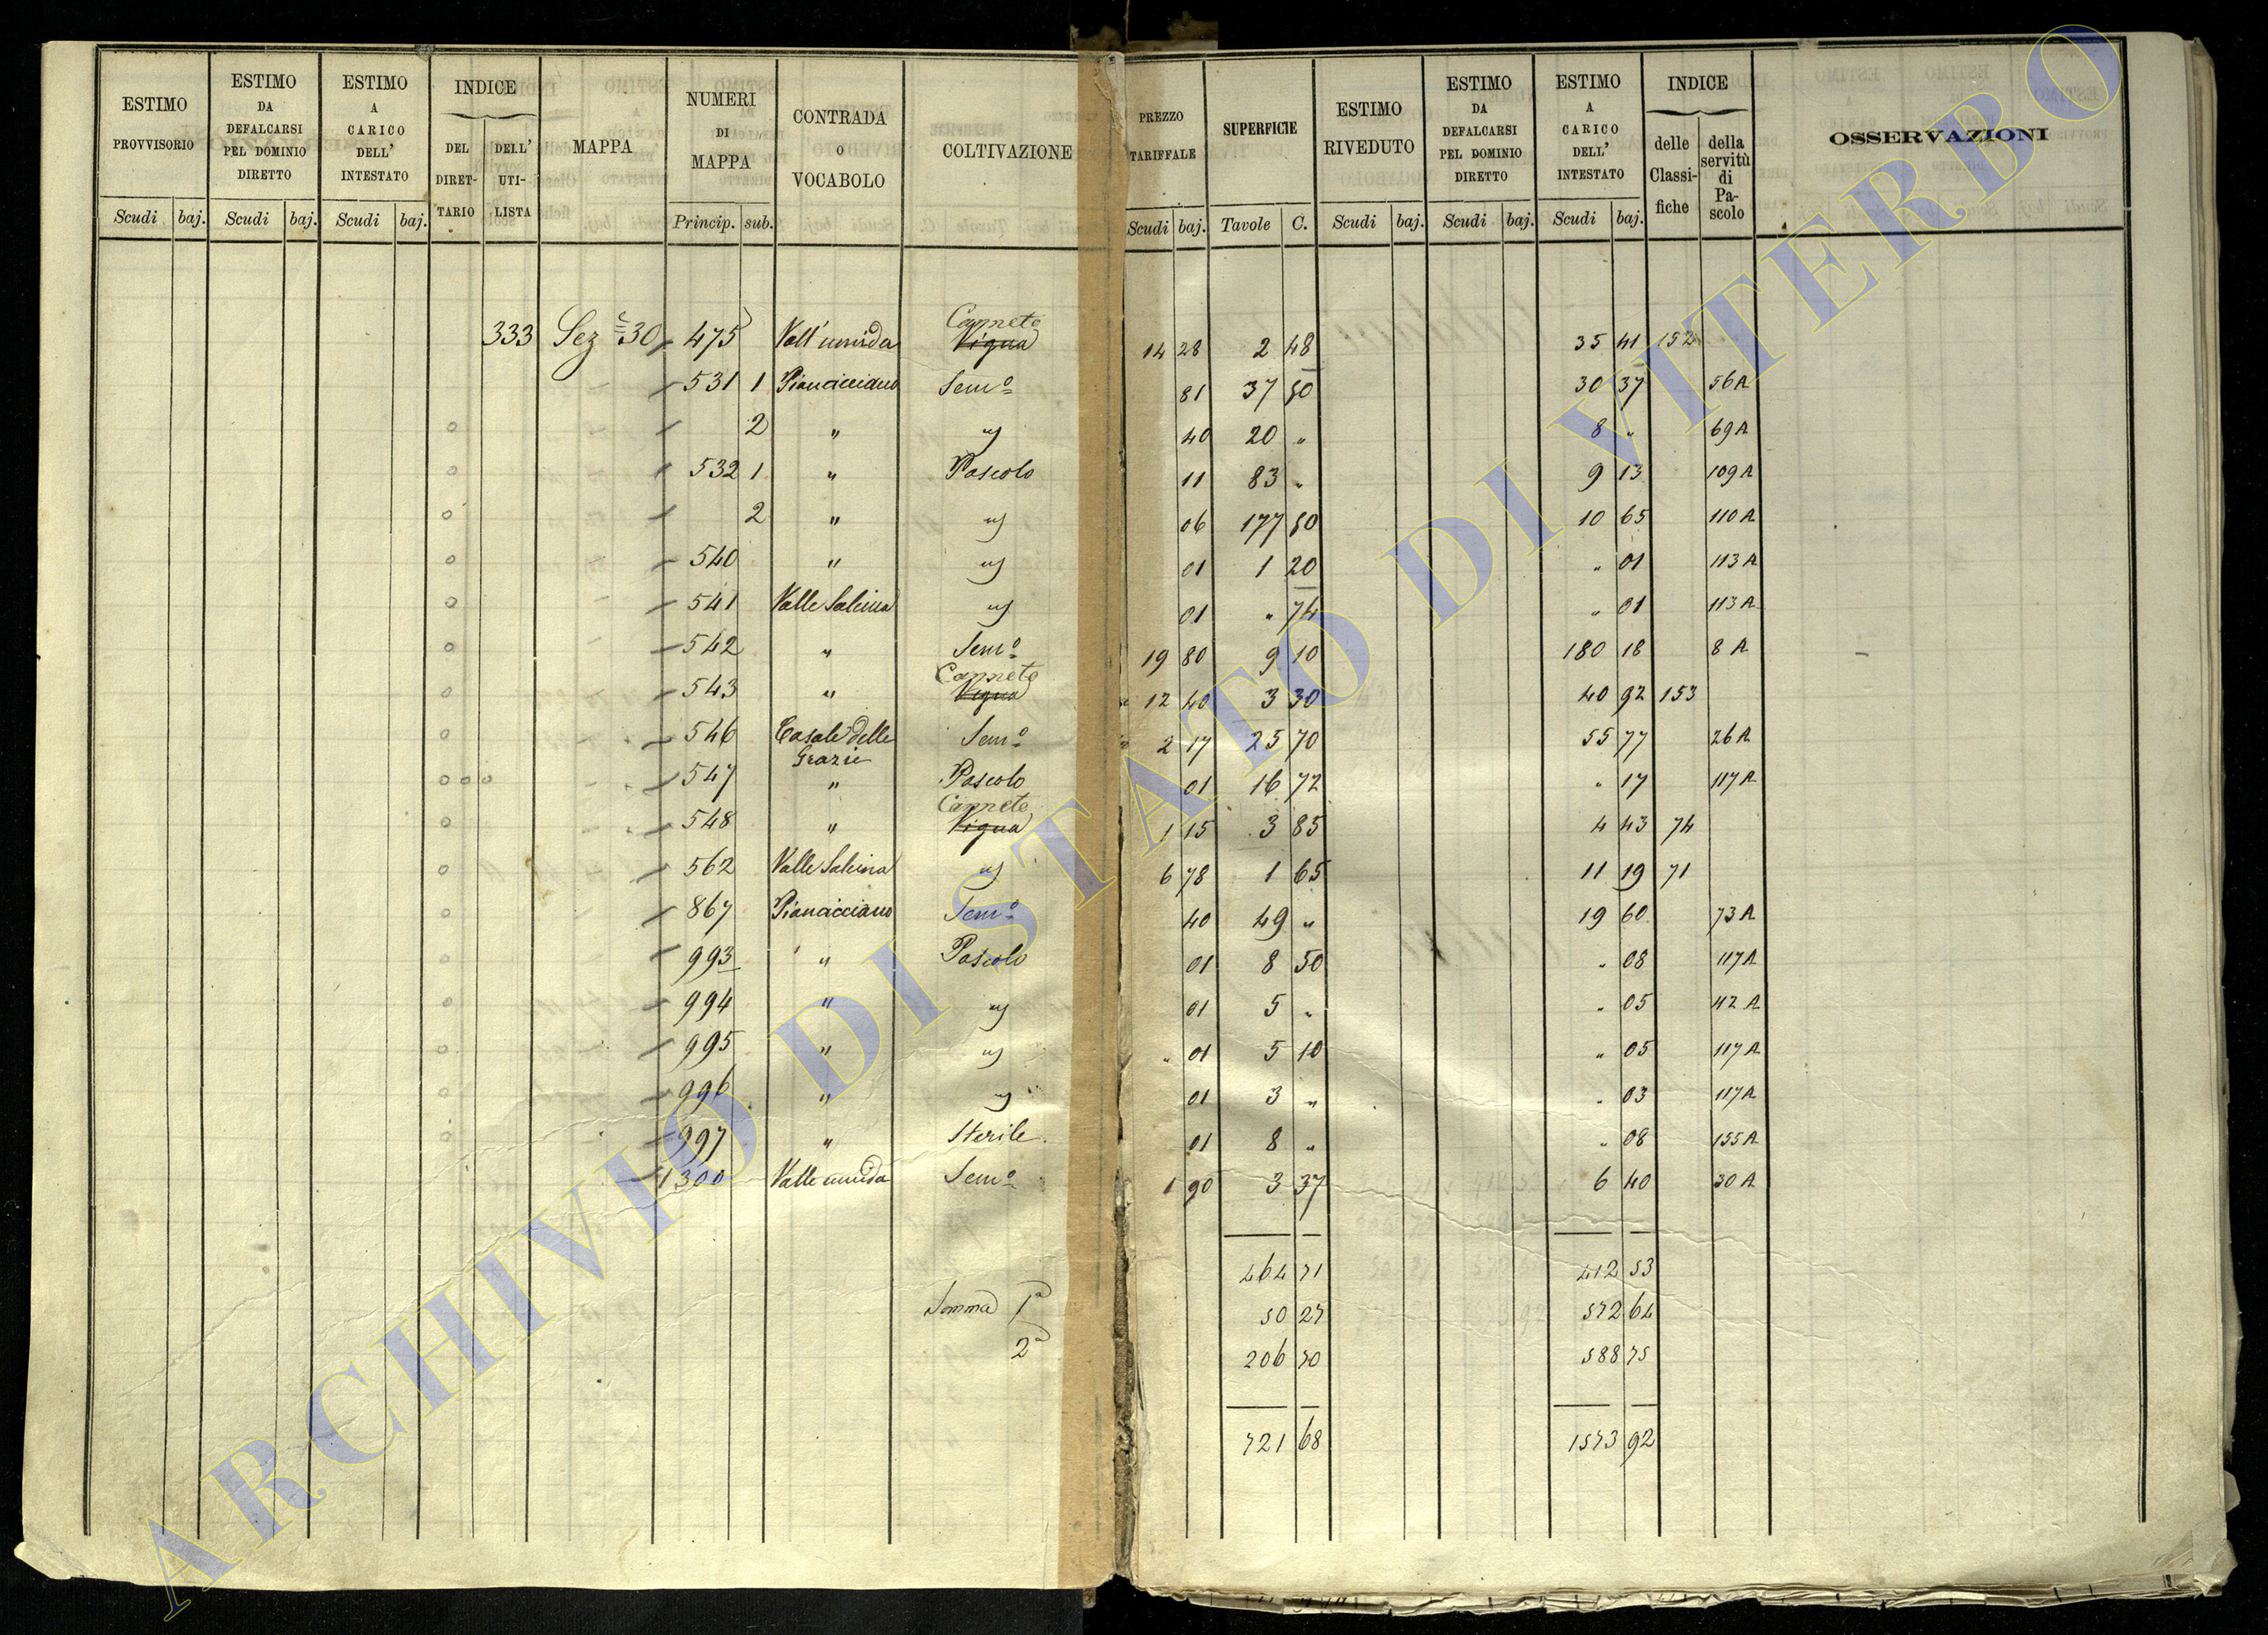 ESTIMO PROVVISORIO Scudi baj.
ESTIMO DA DEFALCARSI PEL DOMINIO DIRETTO Scudi baj.
ESTIMO A CARICO DELL' INTESTATO Scudi baj.
INDICE DEL DIRET- TARIO DELL' UTI- LISTA
MAPPA
NUMERI DI MAPPA Princip. sub.
CONTRADA O VOCABOLO
COLTIVAZIONE
PREZZO TARIFFALE Scudi baj.
SUPERFICIE Tavole C.
ESTIMO RIVEDUTO Scudi baj.
ESTIMO DA DEFALCARSI PEL DOMINIO DIRETTO Scudi baj.
ESTIMO A CARICO DELL' INTESTATO Scudi baj.
INDICE delle Classi- fiche della servitù di Pa- scolo
OSSERVAZIONI
Canneto
333 Sez 30 475 Vall'umida Vigna 14 28 2 48 35 41 152
531 1 Piancicciano Sem.o 81 37 50 30 37 56 A
2 " " 40 20 " 8 " 69 A
532 1 " Pascolo 11 83 " 9 13 109 A
2 " " 06 177 50 10 65 110 A
540 " " 01 1 20 " 01 113 A
541 Valle Salcina " 01 " 74 " 01 113 A
542 " Sem.o 19 80 9 10 180 18 8 A
Canneto
543 " Vigna 12 40 3 30 40 92 153
546 Casale delle Grazie Sem.o 2 17 25 70 55 77 26 A
547 " Pascolo 01 16 72 " 17 117 A
Canneto
548 " Vigna 1 15 3 85 4 43 74
562 Valle Salcina " 6 78 1 65 11 19 71
867 Piancicciano Sem.o 40 49 " 19 60 73 A
993 " Pascolo 01 8 50 " 08 117 A
994 " " 01 5 " " 05 A
995 " " " 01 5 10 " 05 117 A
996 " " 01 3 " " 03 117 A
997 " Sterile 01 8 " " 08 155 A
1300 Valle umida Sem.o 1 90 3 37 6 40 30 A
464 71 412 53
Somma 1a 50 27 572 64
2a 206 70 588 75
721 68 1573 92
ARCHIVIO DI STATO DI VITERBO